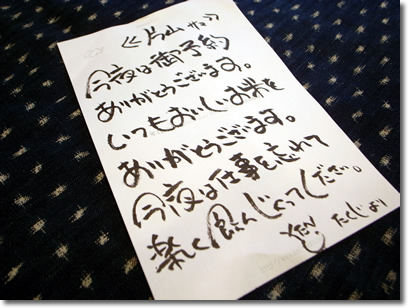 《片山 サマ》
今夜は御予約
ありがとうございます。
いつもおいしいお米を
ありがとうございます。
今夜は仕事を忘れて
楽しく飲んじゃってください。
たくじより